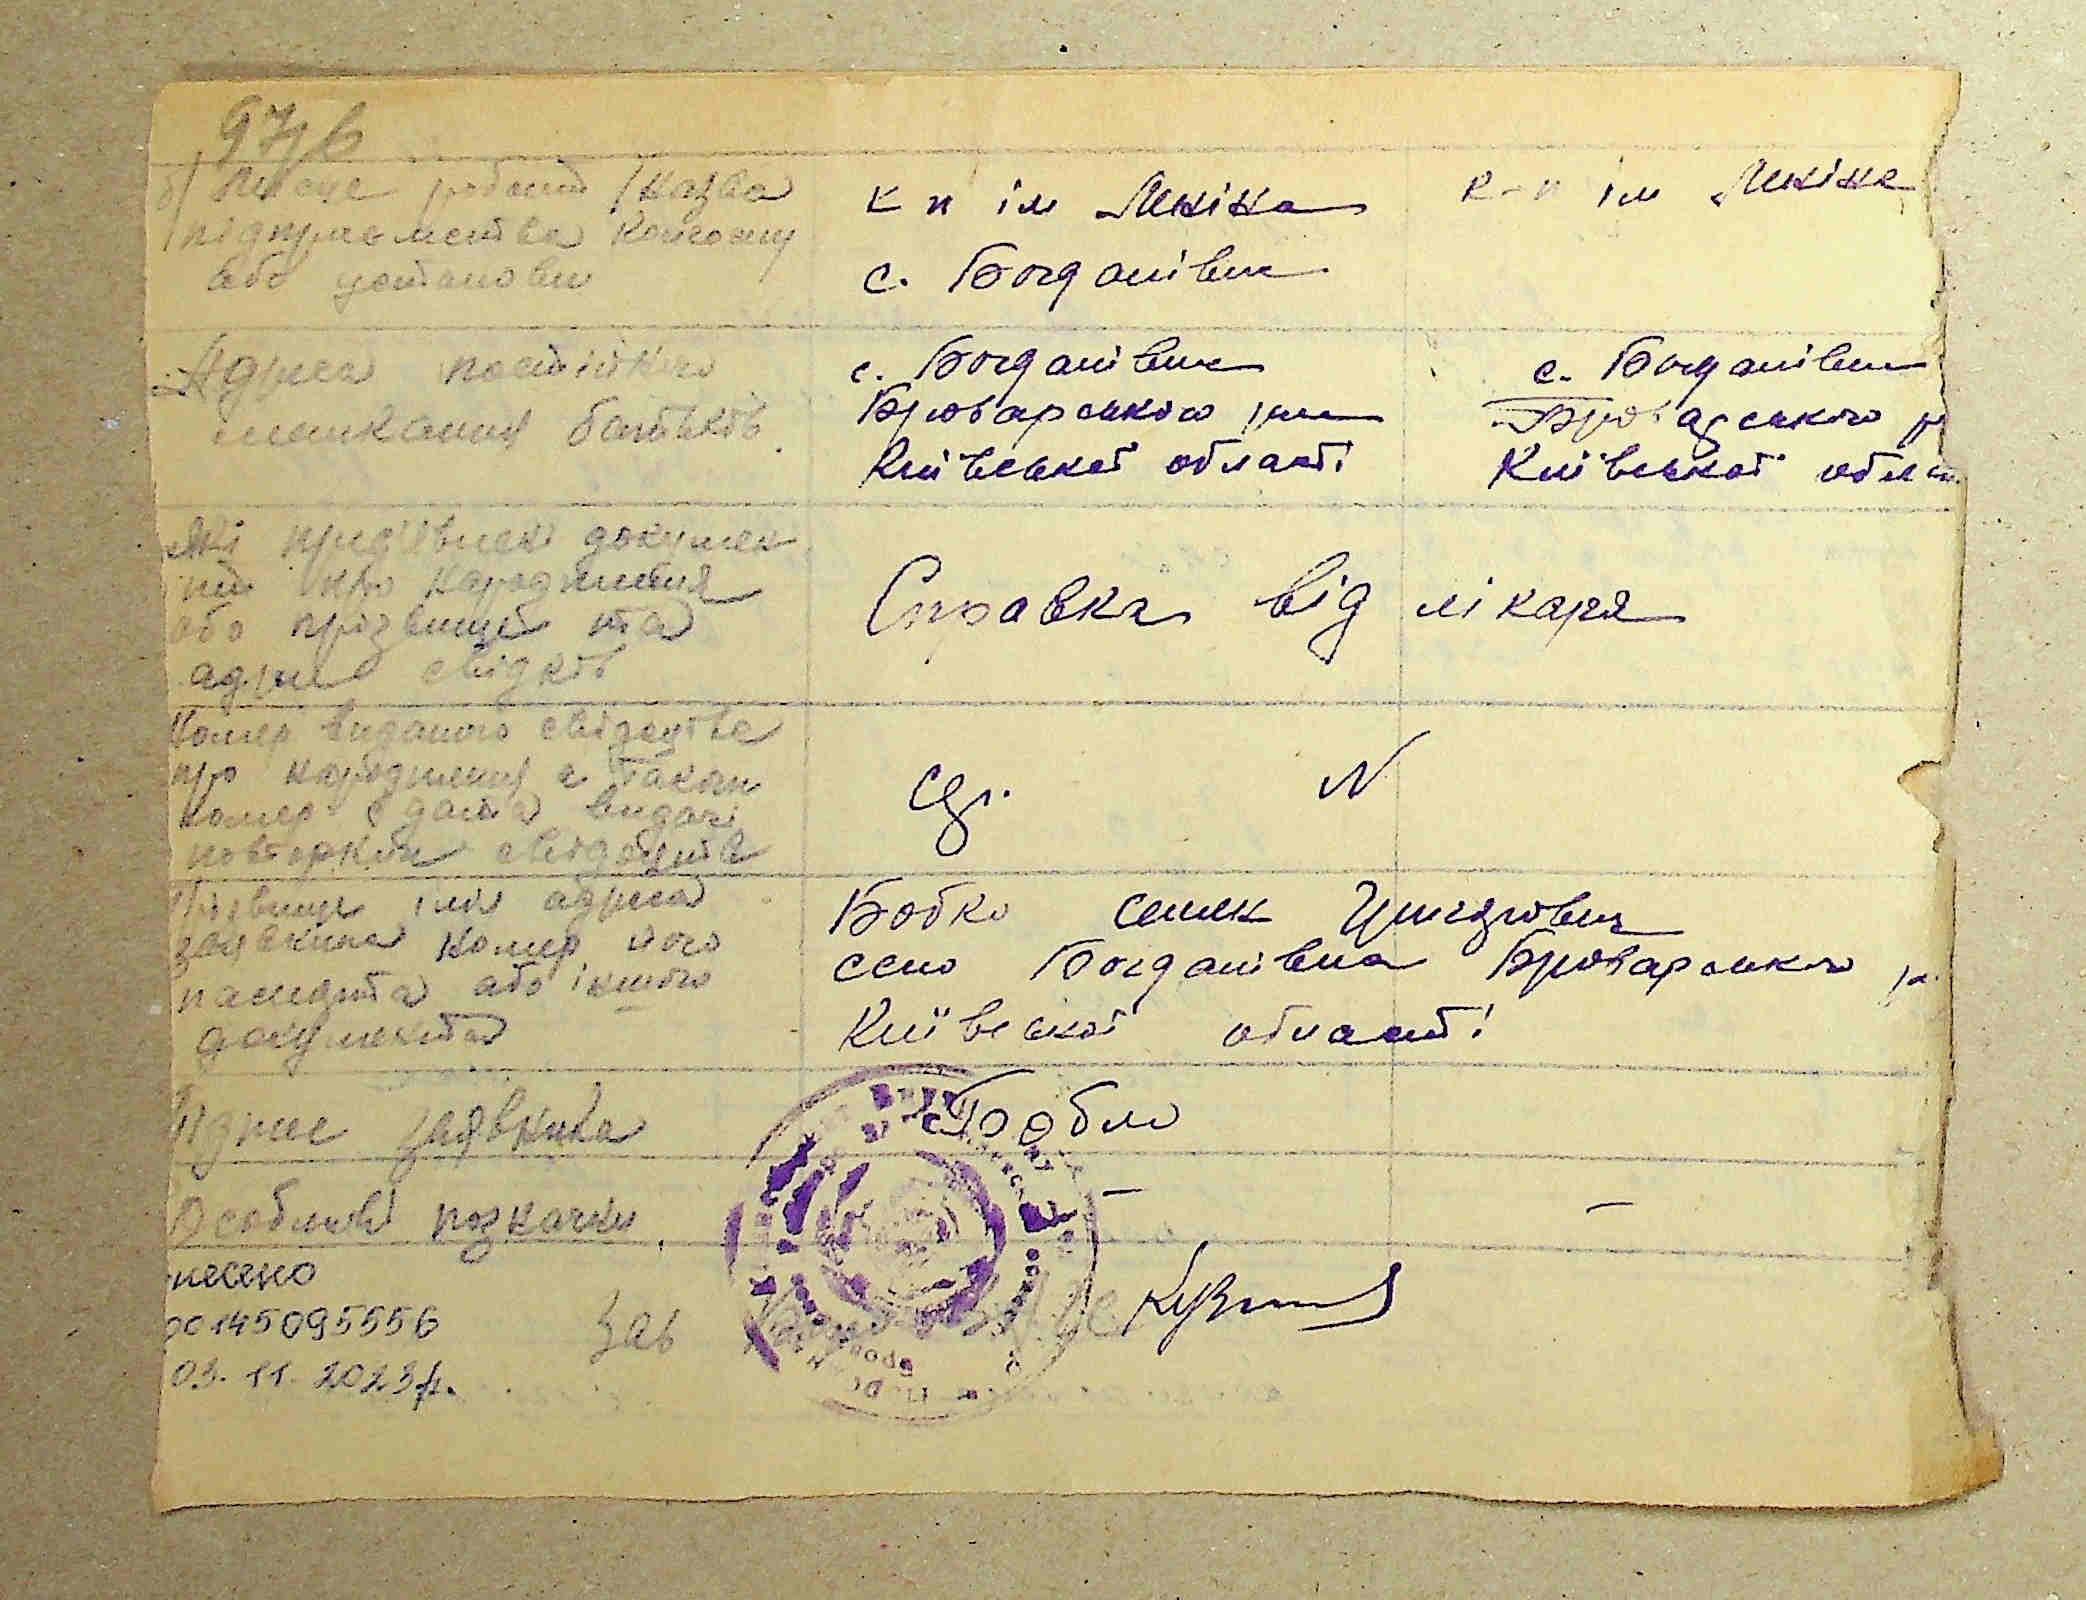 97 б
б) Місце роботи (назва
підприємства колгоспу
або установи
к п ім Леніна
с. Богданівки
к-п ім Леніна
Адреса постійного
мешкання батьків.
с. Богданівки
Броварського р-ну
Київської області
с. Богданівки
Броварського р
Київської обла
Які пред'явлені докумен
ти про народження
або прізвище та
адреса свідків
Справка від лікаря
Номер виданого свідоцтва
про народження а також
номер і дата видачі
повторних свідоцтв
N
Прізвище ім'я адреса
заявника номер його
паспорта або іншого
документа
Бобко Семен
село Богданівка Броварського р.
Київської області
Підпис заявника
Бобко
Особливі позначки
—
—
несено
00145095556
03.11.2023р.
Зав